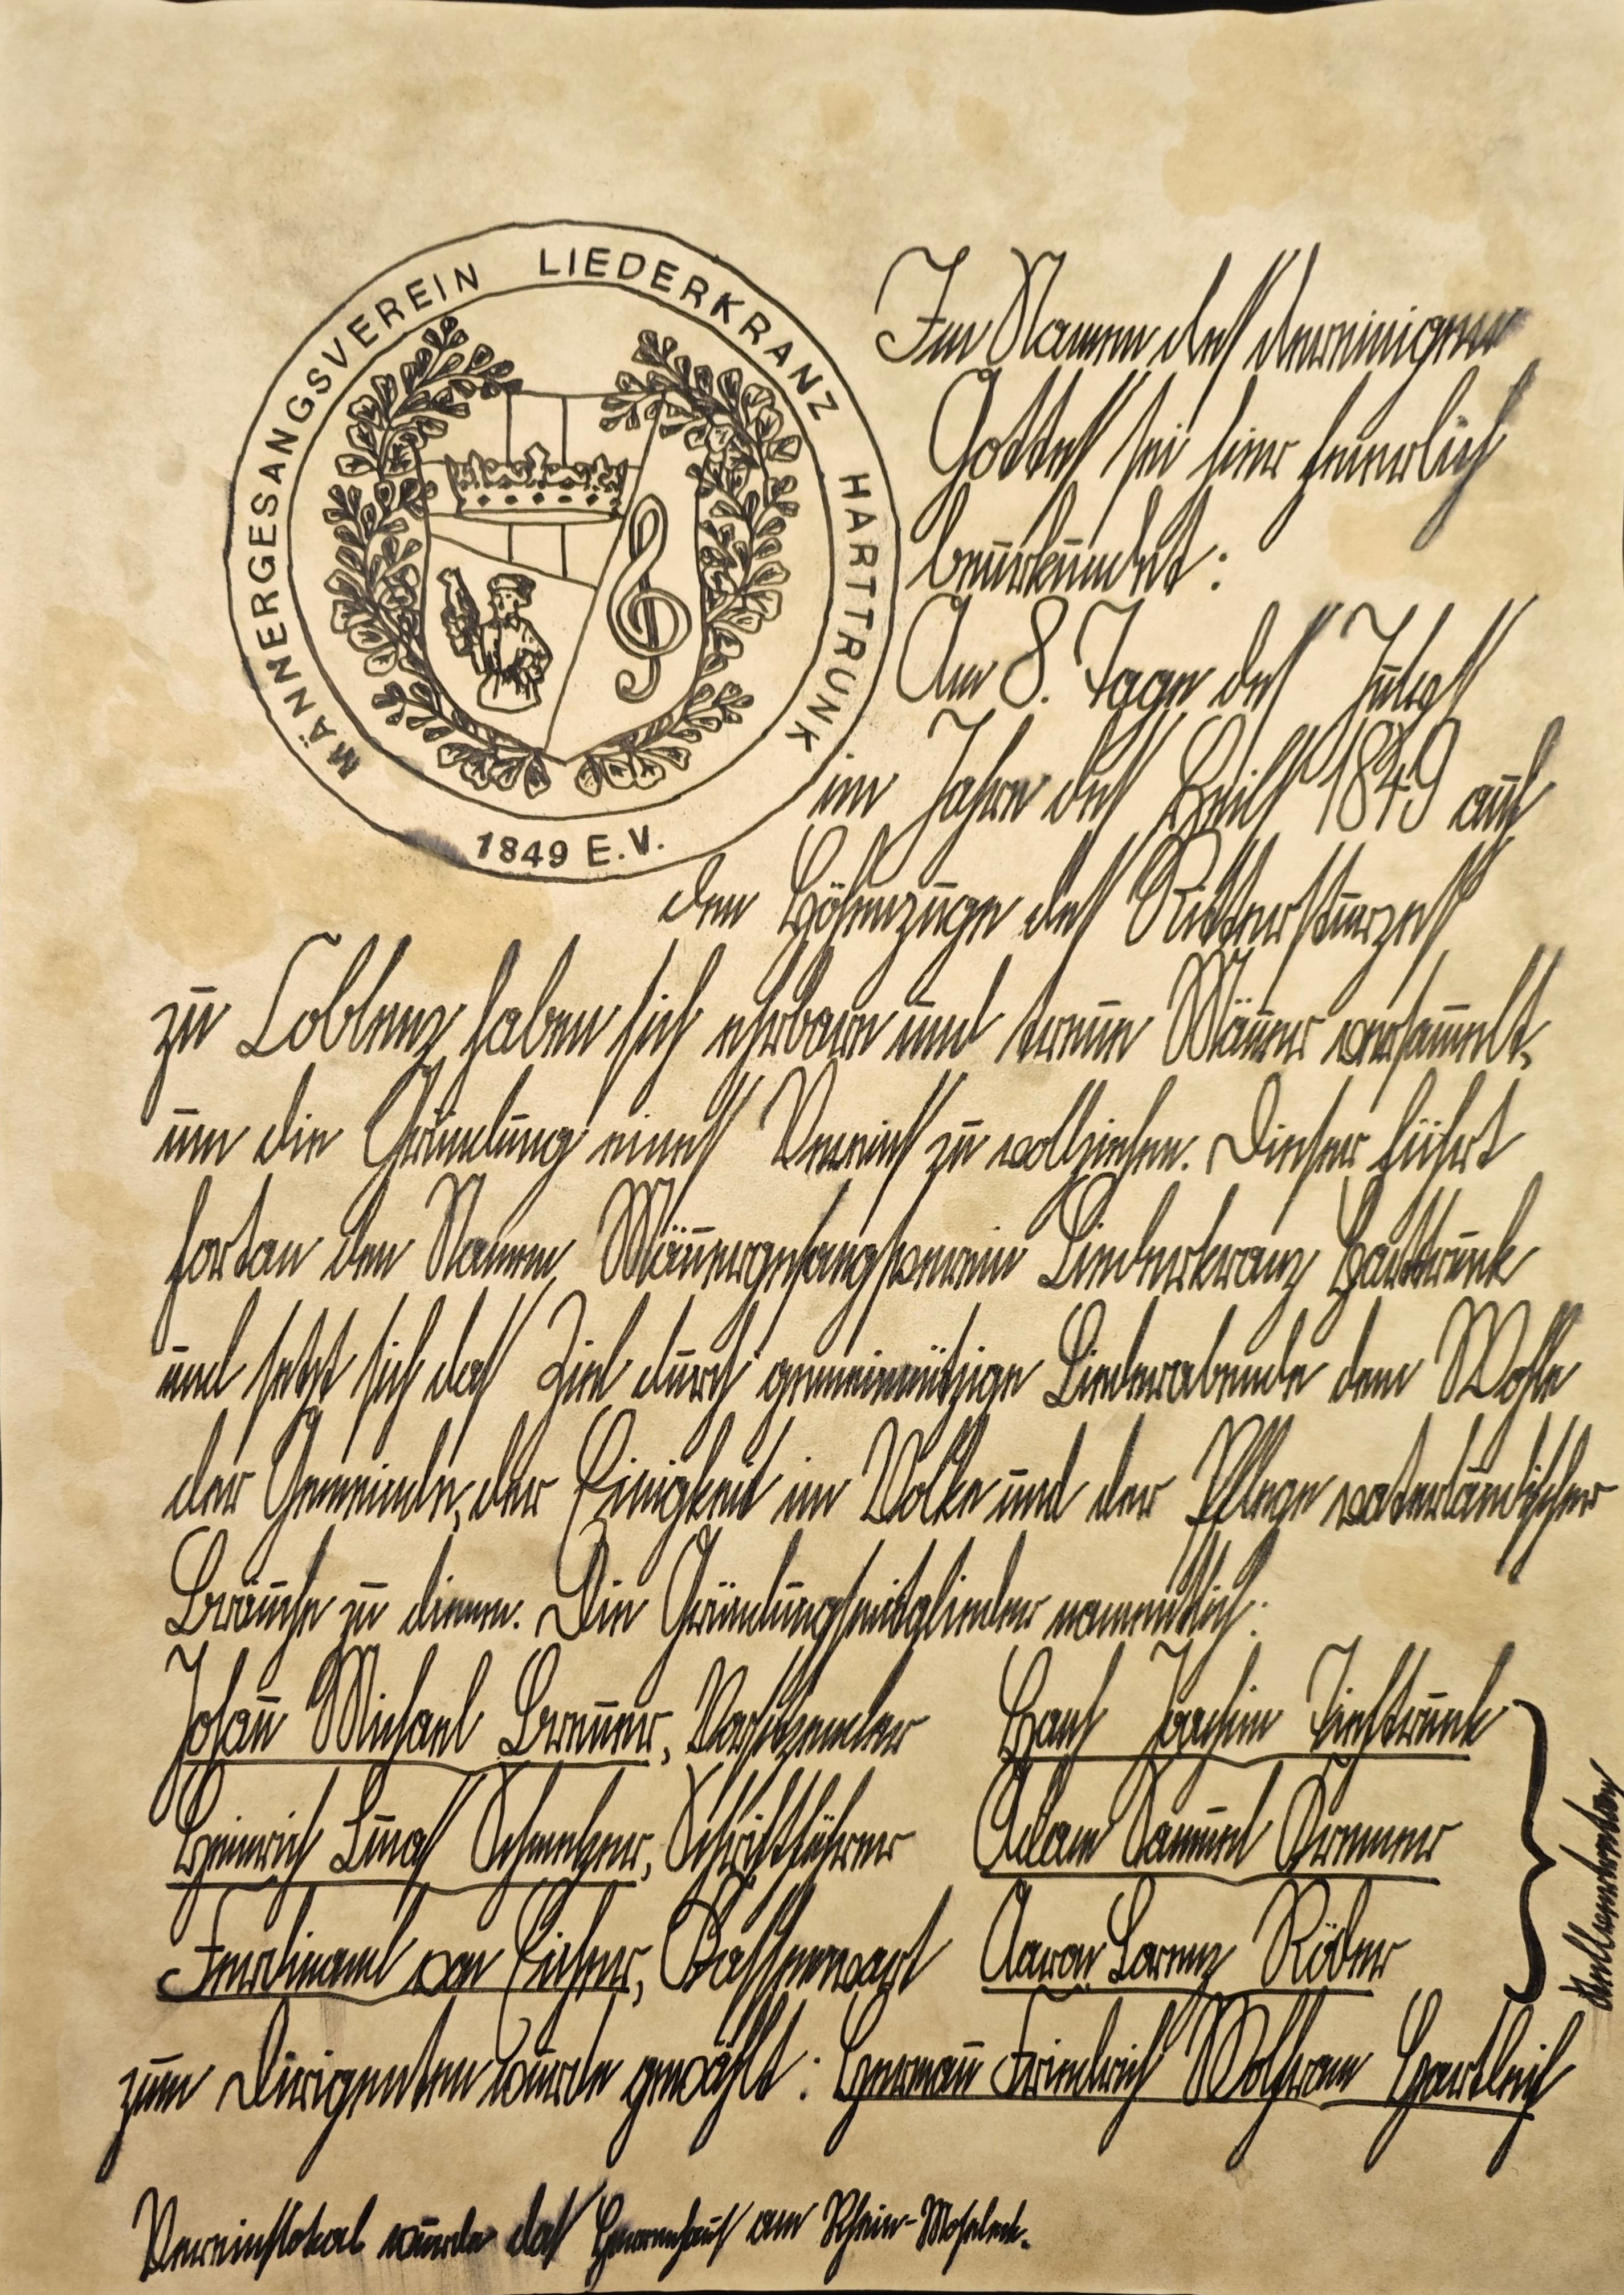 MÄNNERGESANGSVEREIN LIEDERKRANZ HARTTRUNK
1849 E.V.
Im Namen des dreieinigen
Gottes sei hier feierlich
beurkundet:
Am 8. Tage des
im Jahre des Heils 1849 auf
dem Höhenzuge des Rittersturzes
zu Coblenz haben sich ehrbare und treue Män̄er versam̄elt,
um die Gründung eines Vereins zu vollziehen. Dieser führt
fortan den Namen Män̄ergesangsverein Liederkranz Harttrunk
und setzt sich das Ziel durch gemeinnützige Liederabende dem Wohle
der Gemeinde, der Einigkeit im Volke und der Pflege vaterländischer
Bräuche zu dienen. Die Gründungsmitglieder namentlich:
Johan̄ Michael Breuer, Vorsitzender Hans Joachim Tieftrunk
Heinrich Lukas Schmelzer, Schriftführer Adam Samuel Kremer
Ferdinand von Eicher, Kassenwart Aaron Lorenz Röder
Stellvertreter
zum Dirigenten wurde gewählt: Herman̄ Friedrich Wolfram Hartleif
Vereinslokal wurde das Herrenhaus am Rhein-Moseleck.